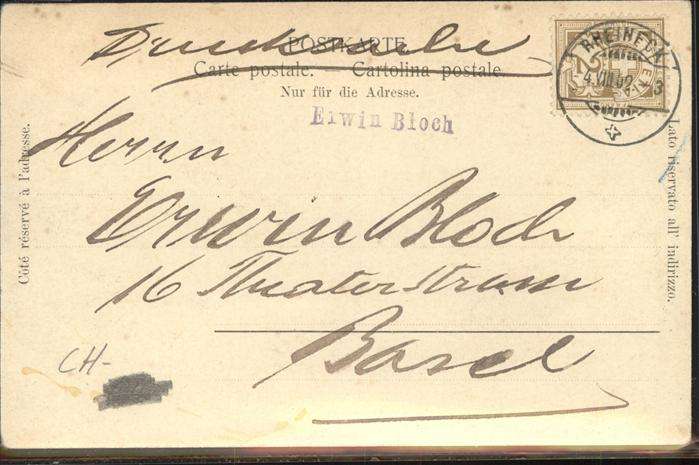 Drucksache
POSTKARTE.
Carte postale. — Cartolina postale.
Nur für die Adresse.
Erwin Bloch
RHEINECK
2
Côté réservé à l'adresse.
Lato riservato all' indirizzo.
Herrn
Erwin Bloch
16 Theaterstrasse
Basel
CH-